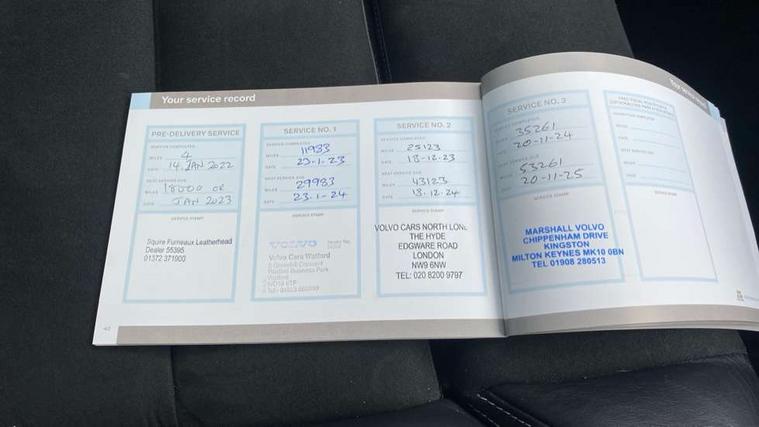 Your service record
Your service record
PRE-DELIVERY SERVICE
SERVICE COMPLETED
MILES 4
DATE 14 JAN 2022
NEXT SERVICE DUE
MILES 18000 OR
DATE JAN 2023
SERVICE STAMP
Squire Furneaux Leatherhead
Dealer 55395
01372 371900
SERVICE NO. 1
SERVICE COMPLETED
MILES 11983
DATE 23-1-23
NEXT SERVICE DUE
MILES 29983
DATE 23.1-24
SERVICE STAMP
VOLVO
Dealer No.
Volvo Cars Watford
Business Park
Watford
SERVICE NO. 2
SERVICE COMPLETED
MILES 25123
DATE 13-12-23
NEXT SERVICE DUE
MILES 43123
DATE 13.12.24
SERVICE STAMP
VOLVO CARS NORTH LON
THE HYDE
EDGWARE ROAD
LONDON
NW9 6NW
TEL: 020 8200 9797
SERVICE NO. 3
SERVICE COMPLETED
MILES 35261
DATE 20-11-24
NEXT SERVICE DUE
MILES 53261
DATE 20-11-25
SERVICE STAMP
MARSHALL VOLVO
CHIPPENHAM DRIVE
KINGSTON
MILTON KEYNES MK10 0BN
TEL 01908 280513
MILES
DATE
NEXT SERVICE DUE
MILES
DATE
SERVICE STAMP